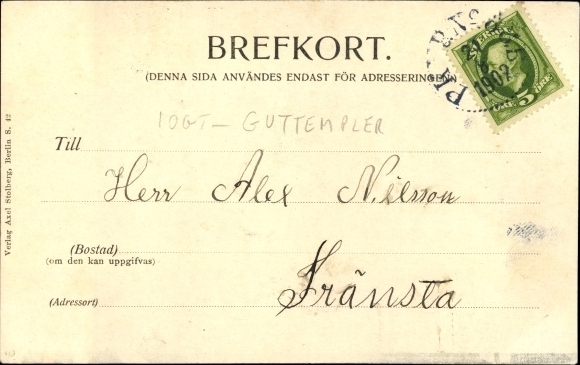 BREFKORT.
(DENNA SIDA ANVÄNDES ENDAST FÖR ADRESSERINGEN)
SVERIGE
1902
5
ÖRE ÖRE
IOGT – GUTTEMPLER
Till
Herr Alex Nilsson
(Bostad)
(om den kan uppgifvas)
Fränsta
(Adressort)
Verlag Axel Stolberg, Berlin S. 42